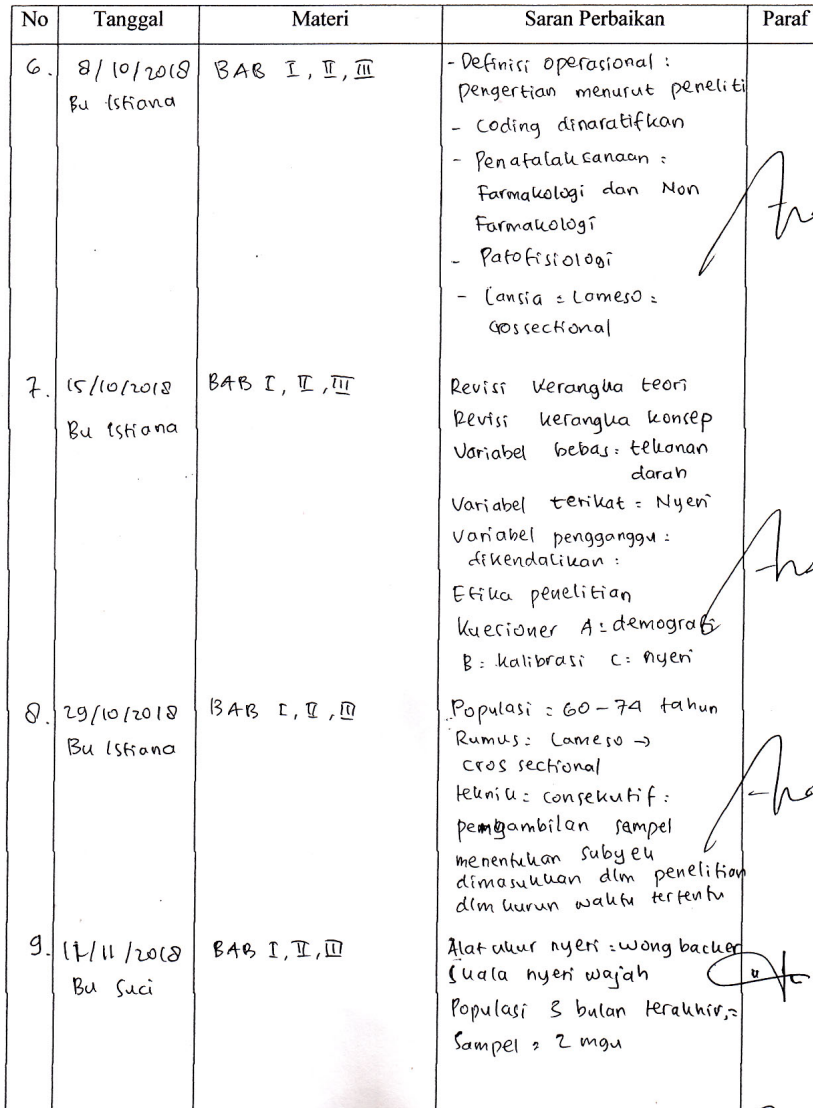 No Tanggal Materi Saran Perbaikan Paraf
6. 8/10/2018 BAB I, II, III - Definisi operasional :
Bu Istiana pengertian menurut peneliti
- Coding dinaratifkan
- Penatalaksanaan :
Farmakologi dan Non
Farmakologi
- Patofisiologi
- Lansia : Lameso :
crossectional
7. 15/10/2018 BAB I, II, III Revisi kerangka teori
Bu Istiana Revisi kerangka konsep
Variabel bebas : tekanan
darah
Variabel terikat : Nyeri
Variabel pengganggu :
dikendalikan :
Etika penelitian
Kuesioner A : demografi
B : kalibrasi C : nyeri
8. 29/10/2018 BAB I, II, III Populasi : 60-74 tahun
Bu Istiana Rumus : Lameso →
cros sectional
teknik : consekutif :
pengambilan sampel
menentukan subyek
dimasukkan dlm penelitian
dlm kurun waktu tertentu
9. /11/2018 BAB I, II, III Alat ukur nyeri : wong backer
Bu Suci Skala nyeri wajah
Populasi 3 bulan terakhir,=
Sampel : 2 mgu